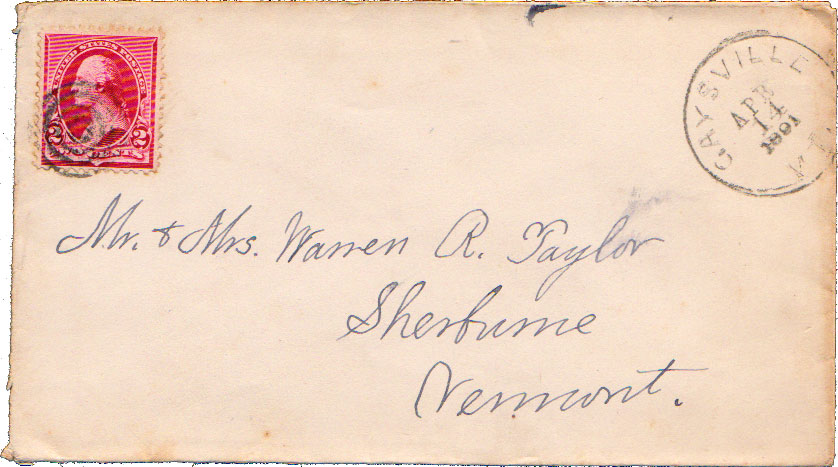 UNITED STATES POSTAGE
2 2
CENTS
GAYSVILLE
APR
14
1891
Mr. & Mrs. Warren R. Taylor
Sherburne
Vermont.